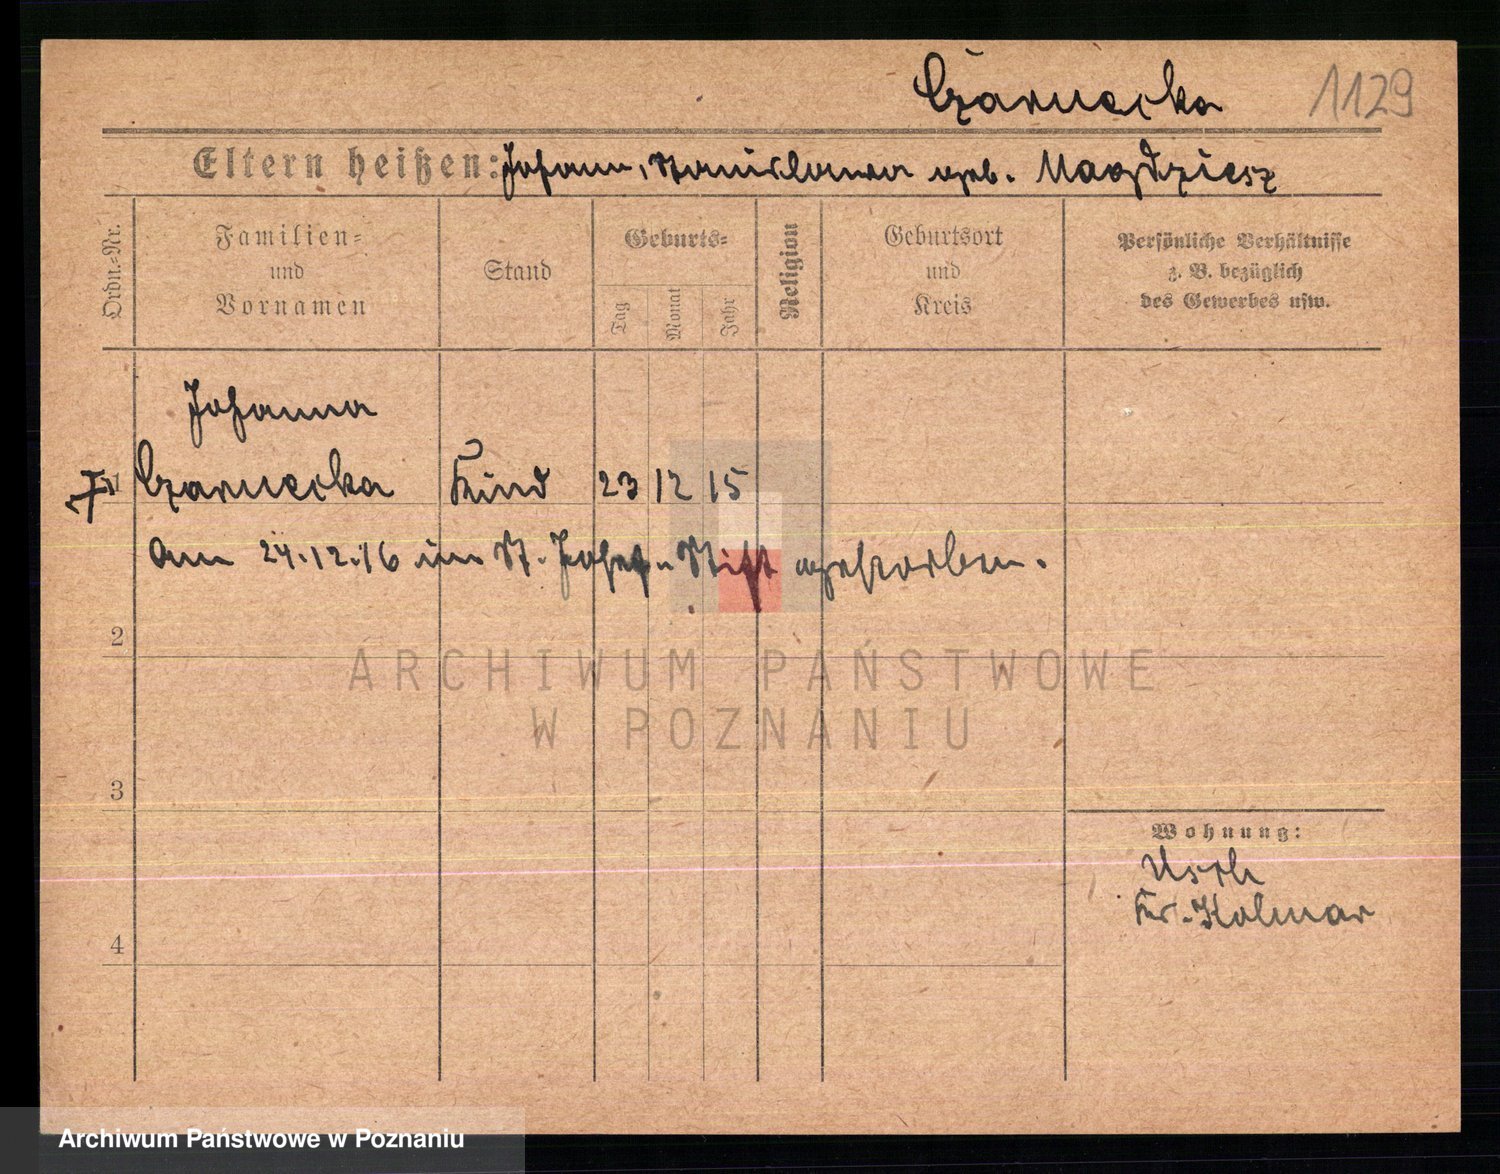 Czarnecka 1129
Eltern heißen: Johann, Stanislawa geb. Magdziesz
Ordn.=Nr.
Familien=
und
Vornamen
Stand
Geburts=
Tag
Monat
Jahr
Religion
Geburtsort
und
Kreis
Persönliche Verhältnisse
z. B. bezüglich
des Gewerbes usw.
Johanna
1 Czarnecka Kind 23 12 15
am 24.12.16 im St. Josef-Stift gestorben.
2
ARCHIWUM PAŃSTWOWE
W POZNANIU
3
Wohnung:
Usch
Kr. Kolmar
4
Archiwum Państwowe w Poznaniu